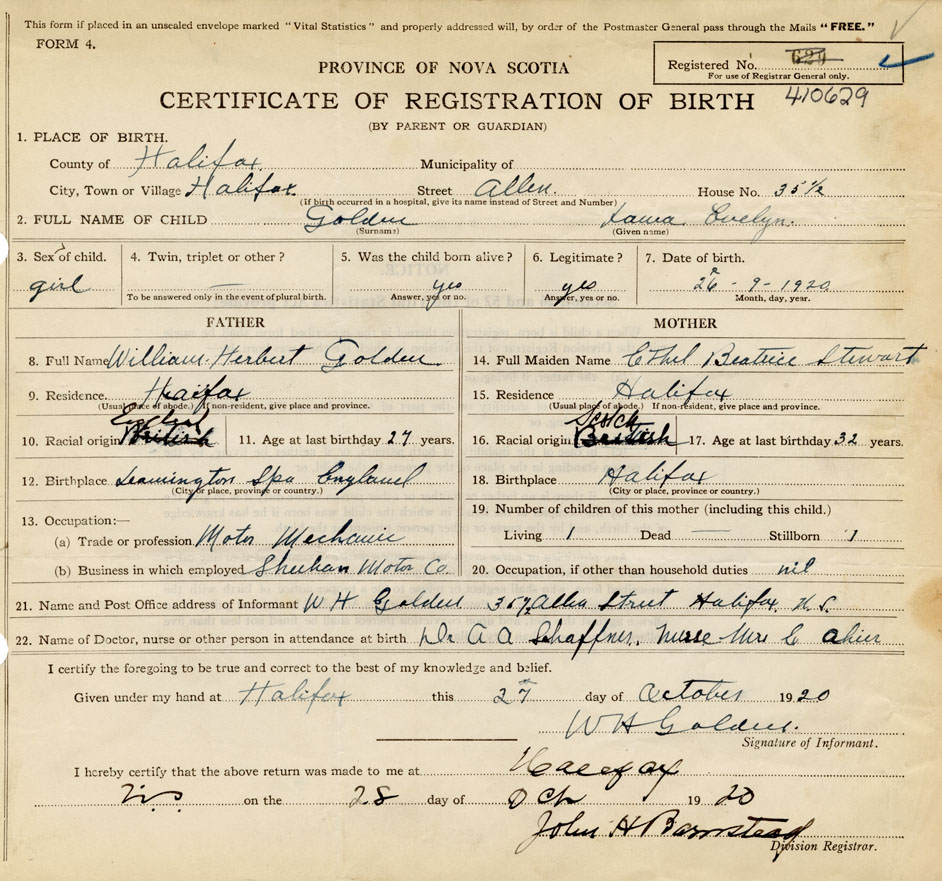 This form if placed in an unsealed envelope marked "Vital Statistics" and properly addressed will, by order of the Postmaster General pass through the Mails "FREE."
FORM 4.
Registered No. 629
For use of Registrar General only.
410629
PROVINCE OF NOVA SCOTIA
CERTIFICATE OF REGISTRATION OF BIRTH
(BY PARENT OR GUARDIAN)
1. PLACE OF BIRTH.
County of Halifax Municipality of
City, Town or Village Halifax Street Allen. House No. 35½
(If birth occurred in a hospital, give its name instead of Street and Number)
2. FULL NAME OF CHILD Golden Laura Evelyn.
(Surname) (Given name)
3. Sex of child. 4. Twin, triplet or other? 5. Was the child born alive? 6. Legitimate? 7. Date of birth.
girl yes yes 26 - 9 - 1920
To be answered only in the event of plural birth. Answer, yes or no. Answer, yes or no. Month, day, year.
FATHER
8. Full Name William Herbert Golden
9. Residence. Halifax
(Usual place of abode.) If non-resident, give place and province.
English
10. Racial origin British 11. Age at last birthday 27 years.
12. Birthplace Leamington Spa England
(City or place, province or country.)
13. Occupation:—
(a) Trade or profession Motor Mechanic
(b) Business in which employed Sheehan Motor Co.
MOTHER
14. Full Maiden Name Ethel Beatrice Stewart
15. Residence Halifax
(Usual place of abode.) If non-resident, give place and province.
Scotch
16. Racial origin British 17. Age at last birthday 32 years.
18. Birthplace Halifax
(City or place, province or country.)
19. Number of children of this mother (including this child.)
Living 1 Dead — Stillborn 1
20. Occupation, if other than household duties nil
21. Name and Post Office address of Informant W H Golden Allen Street Halifax, N. S.
22. Name of Doctor, nurse or other person in attendance at birth Dr A A Schaffner, Nurse Mrs C
I certify the foregoing to be true and correct to the best of my knowledge and belief.
Given under my hand at Halifax this 27 day of October 1920
W H Golden.
Signature of Informant.
I hereby certify that the above return was made to me at Halifax
N.S. on the 28 day of Oct 1920
John H Barnstead
Division Registrar.